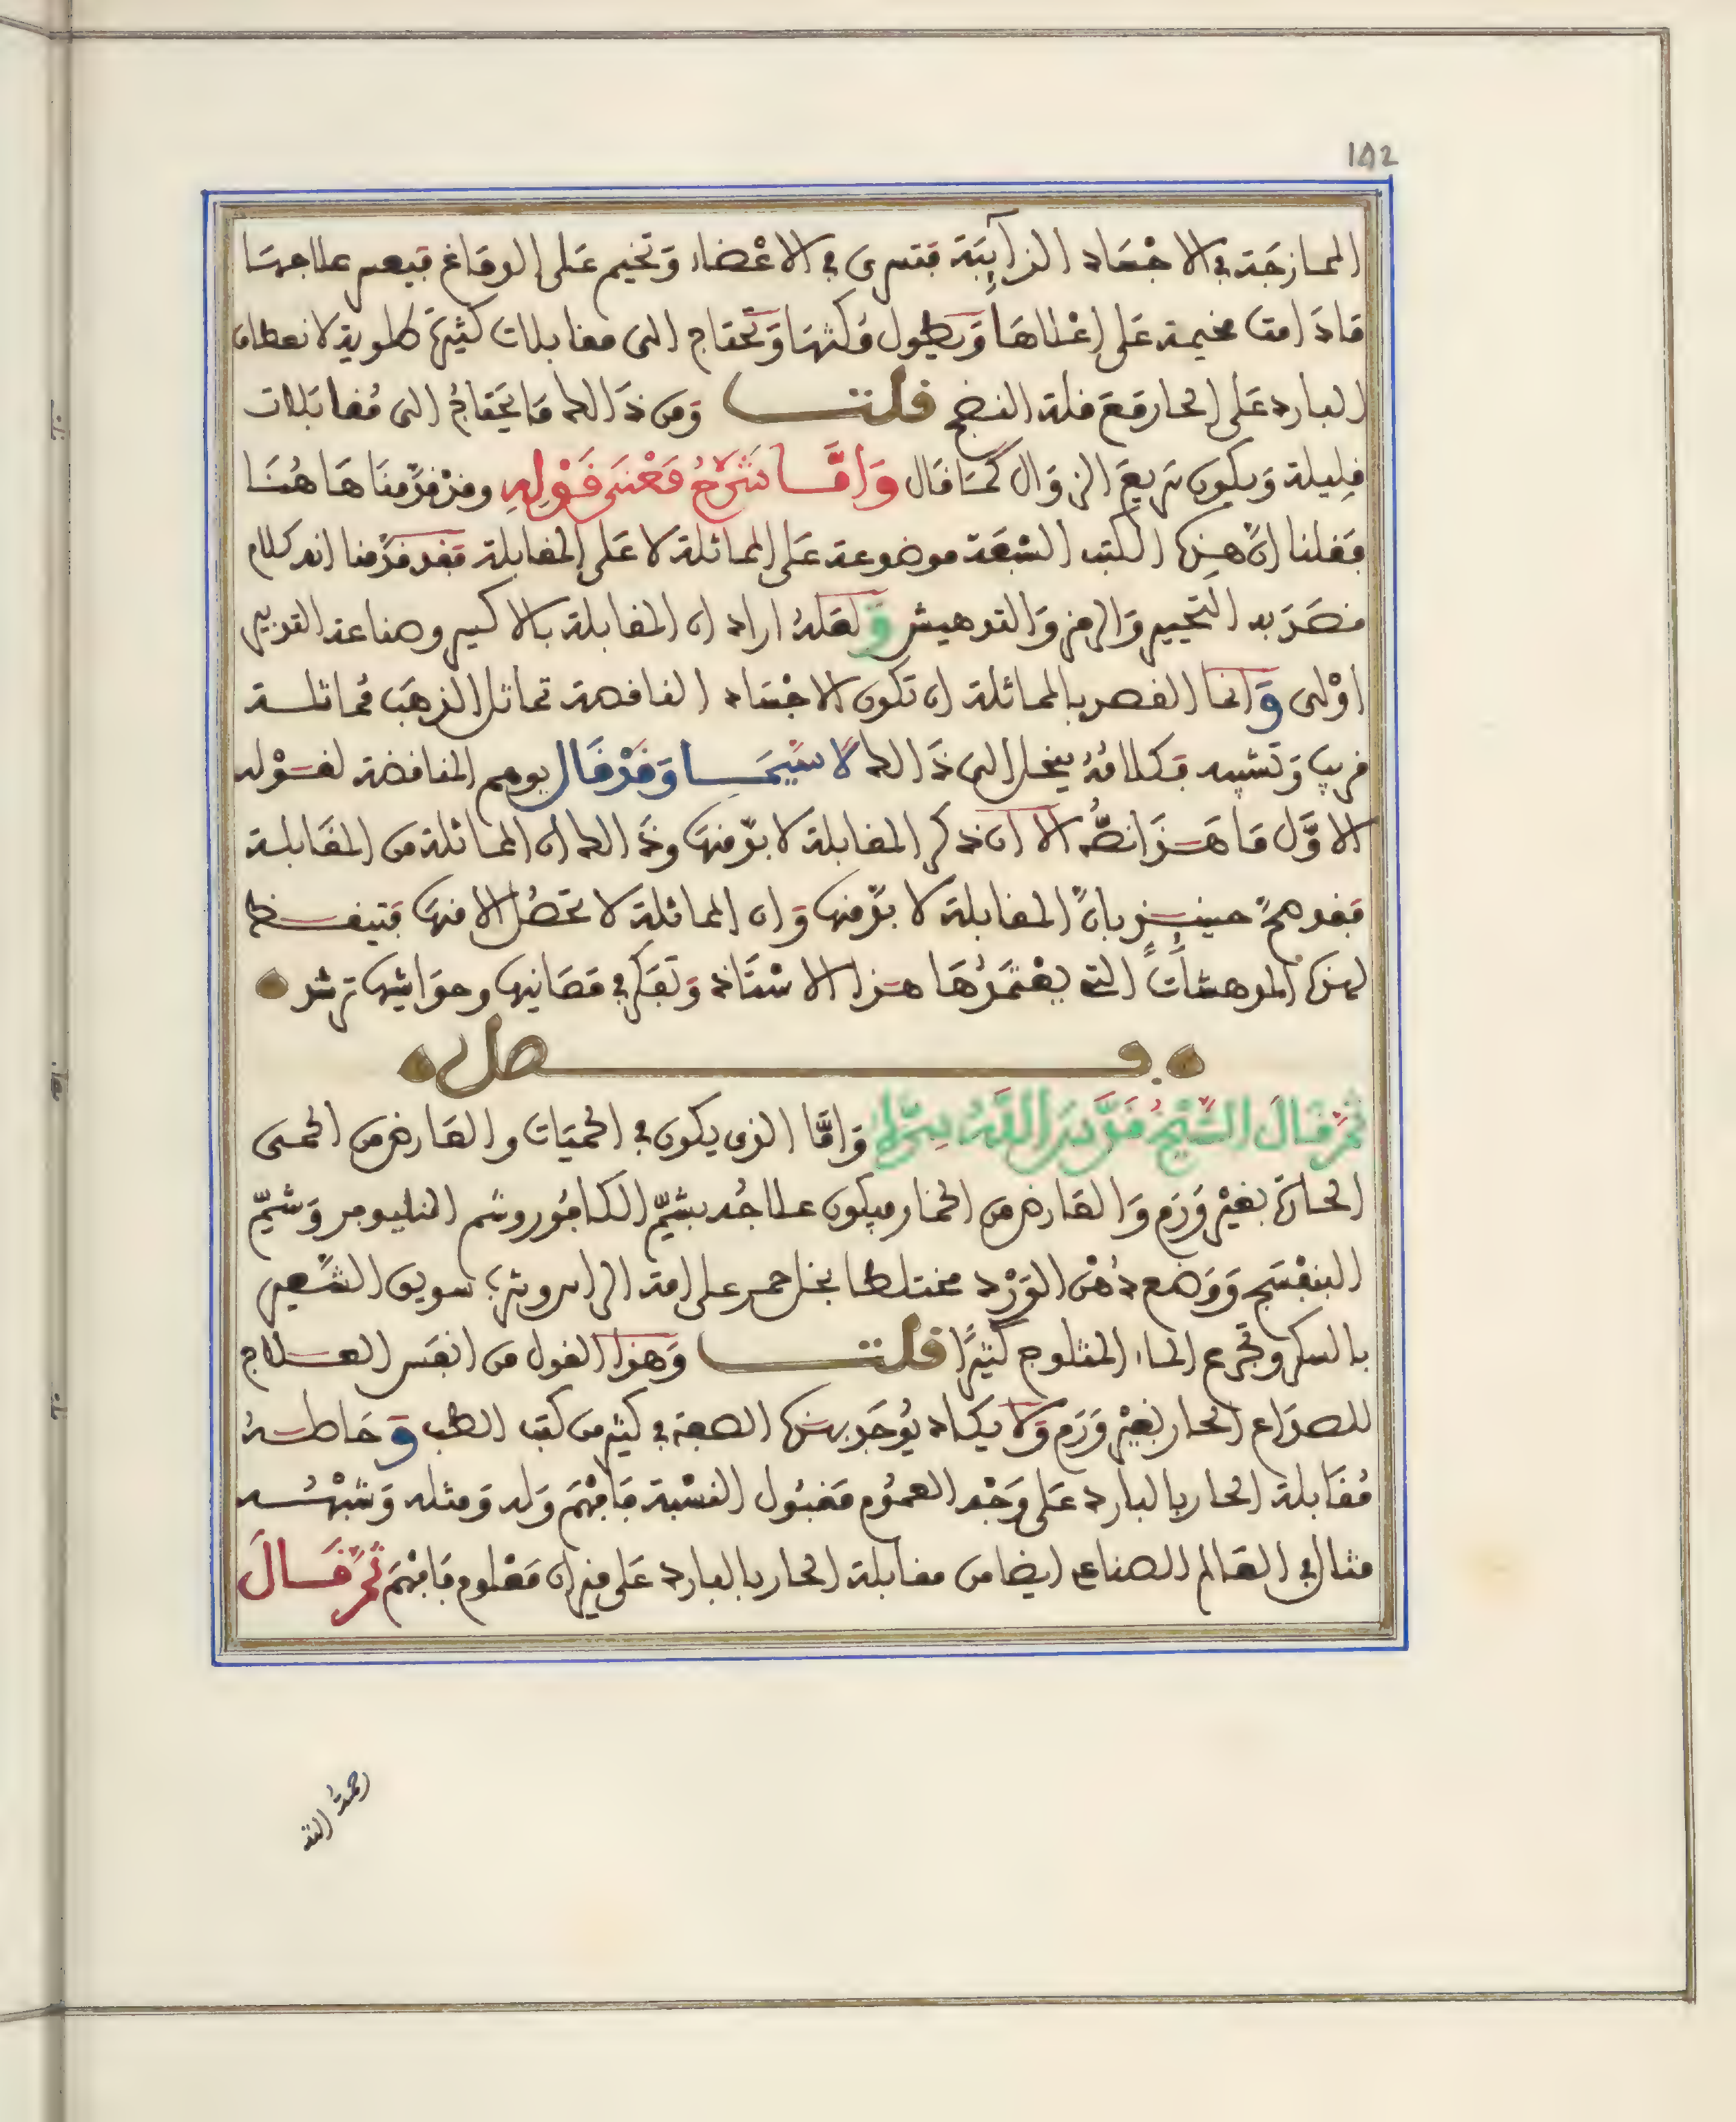 142
الممازجَة في الاجْسَاد الذآئِبَة فتسرى في الاعْضاء وَتخيم عَلى الدمَاغ فيعسر علاجهَا
مَادَامت مخيمة عَلى اعْلاهَا وَيطول مُكثهَا وَتحتاج الى مقابلات كثيرَة طلوية لانعطاف
البارد عَلى الحار مَعَ قلة النضج قلت وَمن ذَالك مَا يحتَاجُ الى مُقابَلات
قليلة وَيكون سَريعَ الزوَال كمَا قال وَامَّا شَرْحُ مَعْنَى قَوْلِهِ وقدْ قدَّمنَا هَاهُنَا
فقلنا انَّ هذه الكتب السّبعَة موضوعة عَلى المماثلة لا عَلى المقابلة فقد قدَّمنا انه كلام
قصَدَ به التحيير وَالرمز وَالتدهيش وَلعَلهُ اراد ان المقابلة بالاكسير وصناعة التدبير
اوْلى وَانما القصد بالمماثلة ان تكون الاجْسَاد الناقصة تماثل الذهَب مُماثلة
قريب وَتشبيه فكلامُهُ ينحل الى ذَالك لا سيَّمَا وَقدْ قال يوهم المناقضة لقوْله
الاوَّل مَا هَذَا نصُّهُ الا ان ذكر المقابلة لا بدّ منهَا وذَالك ان المماثلة من المقَابلة
فقد همَّ حينئذٍ بانَّ المقابلة لا بدّ منها وَان المماثلة لا تحصُل الا منهَا فتيقظ
لهذه المدهشات التي يعْتمدُهَا هذا الاسْتَاذ وَتفكر في مَعَانيها وحوَاشيها ترشد
فصل
ثمَّ قالَ الشَّيْخُ قدَّسَ اللَّهُ سِرَّهُ وَامَّا الذى يكون في الحميَات والعَارض من الحمى
الحارّة بغيْر وَرَم وَالعَارض من الخمار فيكون علاجُه بشمّ الكافُور وشم النيلوفر وَشمّ
البنفْسَج وَوَضع دُهْن الوَرْد مختلطا بخل خمر على امة الراس وشرب سويق الشَّعير
بالسكر وتجرع الماء المثلوج كثيرًا قلت وَهذا القول من انفَس العلاج
للصدَاع الحار بغيْر وَرَم وَلا يكاد يُوجَد بهذه الصفة في كثير من كتب الطب وَحَاصلهُ
مُقَابلة الحار بالبارد عَلى وَجْه العمُوم مَقبُول النسْبة فافْهَمَ وَله وَمثله وَشبْهُه
مثال في العَالم الصناعي ايضا من مقابلة الحار بالبارد عَلى ميزان مَعْلوم فافْهَمَ ثمَّ قَالَ
رحمهُ الله